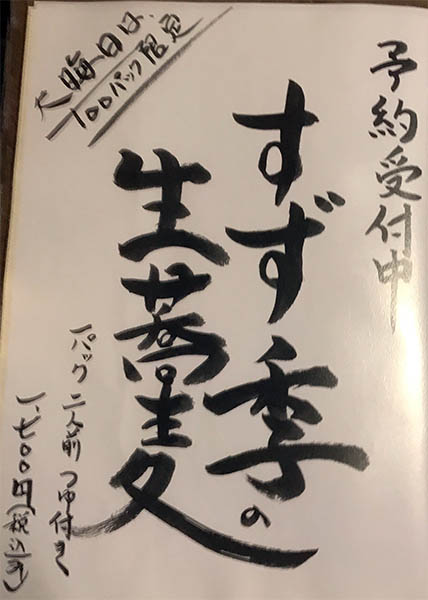 予約受付中
すず季の
生蕎麦
大晦日は、
100パック限定
一パック 二人前 つゆ付き
一、七００円(税込み)